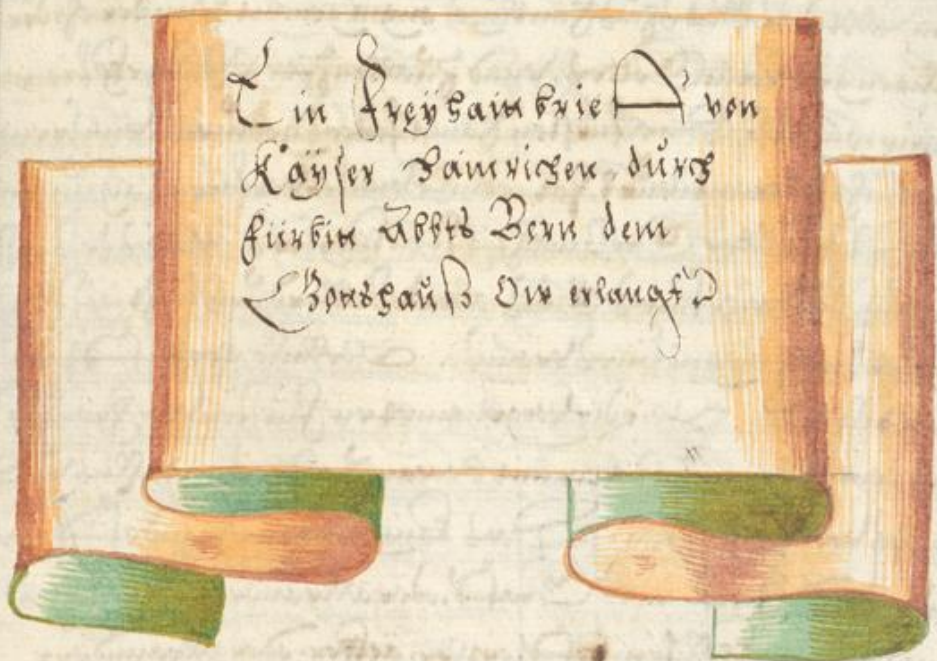 Ein Freyhait brieff von
Kayser Hainrichen durch
fürbit Abbts Bern dem
Gottshauß Ow erlangt